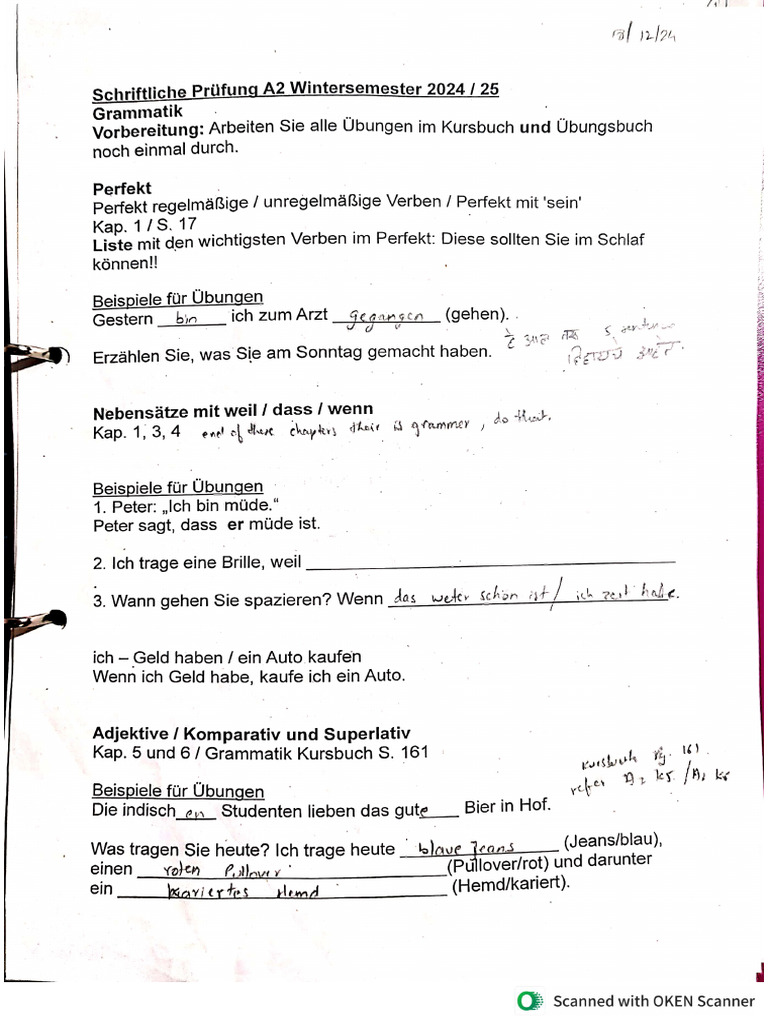 18/12/24
Schriftliche Prüfung A2 Wintersemester 2024 / 25
Grammatik
Vorbereitung: Arbeiten Sie alle Übungen im Kursbuch und Übungsbuch
noch einmal durch.
Perfekt
Perfekt regelmäßige / unregelmäßige Verben / Perfekt mit 'sein'
Kap. 1 / S. 17
Liste mit den wichtigsten Verben im Perfekt: Diese sollten Sie im Schlaf
können!!
Beispiele für Übungen
Gestern bin ich zum Arzt gegangen (gehen).
Erzählen Sie, was Sie am Sonntag gemacht haben.
5 sentence
Nebensätze mit weil / dass / wenn
Kap. 1, 3, 4 end of these chapters their is grammer, do that.
Beispiele für Übungen
1. Peter: „Ich bin müde.“
Peter sagt, dass er müde ist.
2. Ich trage eine Brille, weil
3. Wann gehen Sie spazieren? Wenn das weter schön ist / ich zeit habe.
ich – Geld haben / ein Auto kaufen
Wenn ich Geld habe, kaufe ich ein Auto.
Adjektive / Komparativ und Superlativ
Kap. 5 und 6 / Grammatik Kursbuch S. 161
Kursbuch Pg. 161
refer A2 K5 / A2 K6
Beispiele für Übungen
Die indisch en Studenten lieben das gute Bier in Hof.
Was tragen Sie heute? Ich trage heute blaue Jeans (Jeans/blau),
einen roten Pullover (Pullover/rot) und darunter
ein kariertes Hemd (Hemd/kariert).
Scanned with OKEN Scanner